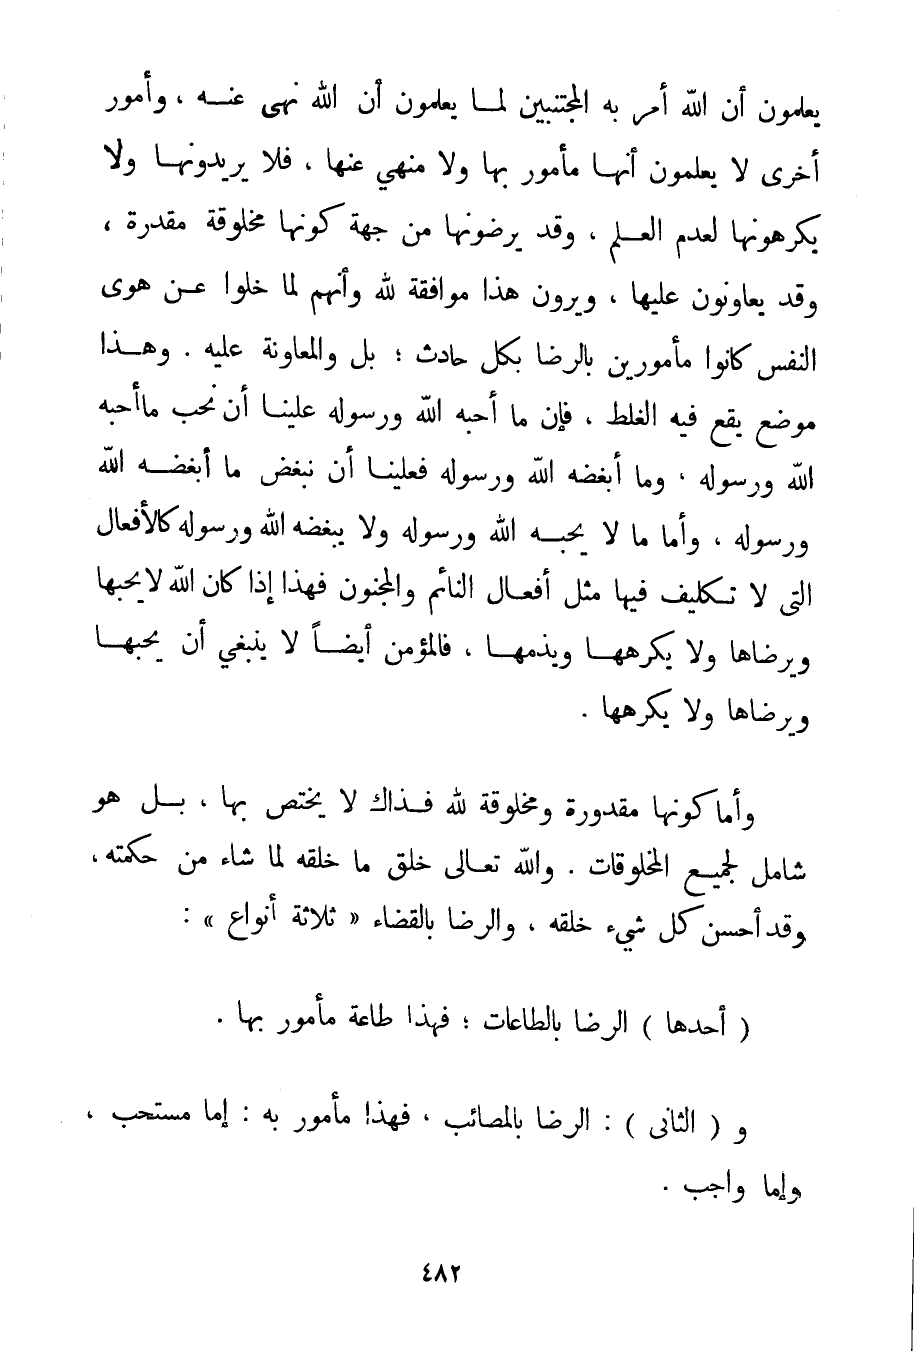 يعلمون أن الله أمر به المجتنبين لما يعلمون أن الله نهى عنه ، وأمور
أخرى لا يعلمون أنها مأمور بها ولا منهي عنها ، فلا يريدونها ولا
يكرهونها لعدم العلم ، وقد يرضونها من جهة كونها مخلوقة مقدرة ،
وقد يعاونون عليها ، ويرون هذا موافقة لله وأنهم لما خلوا عن هوى
النفس كانوا مأمورين بالرضا بكل حادث ؛ بل والمعاونة عليه . وهذا
موضع يقع فيه الغلط ، فإن ما أحبه الله ورسوله علينا أن نحب ماأحبه
الله ورسوله ، وما أبغضه الله ورسوله فعلينا أن نبغض ما أبغضه الله
ورسوله ، وأما ما لا يحبه الله ورسوله ولا يبغضه الله ورسوله كالأفعال
التى لا تكليف فيها مثل أفعال النائم والمجنون فهذا إذا كان الله لايحبها
ويرضاها ولا يكرهها ويذمها ، فالمؤمن أيضاً لا ينبغي أن يحبها
ويرضاها ولا يكرهها .
وأما كونها مقدورة ومخلوقة لله فذاك لا يختص بها ، بل هو
شامل لجميع المخلوقات . والله تعالى خلق ما خلقه لما شاء من حكمته ،
وقد أحسن كل شيء خلقه ، والرضا بالقضاء « ثلاثة أنواع » :
( أحدها ) الرضا بالطاعات ؛ فهذا طاعة مأمور بها .
و ( الثانى ) : الرضا بالمصائب ، فهذا مأمور به : إما مستحب ،
وإما واجب .
٤٨٢